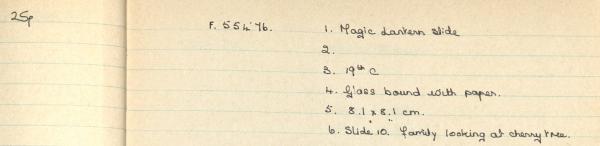 25p
F. 554'76. 1. Magic Lantern slide
2.
3. 19th C
4. Glass bound with paper.
5. 8.1 x 8.1 cm.
6. Slide 10. family looking at cherry tree.